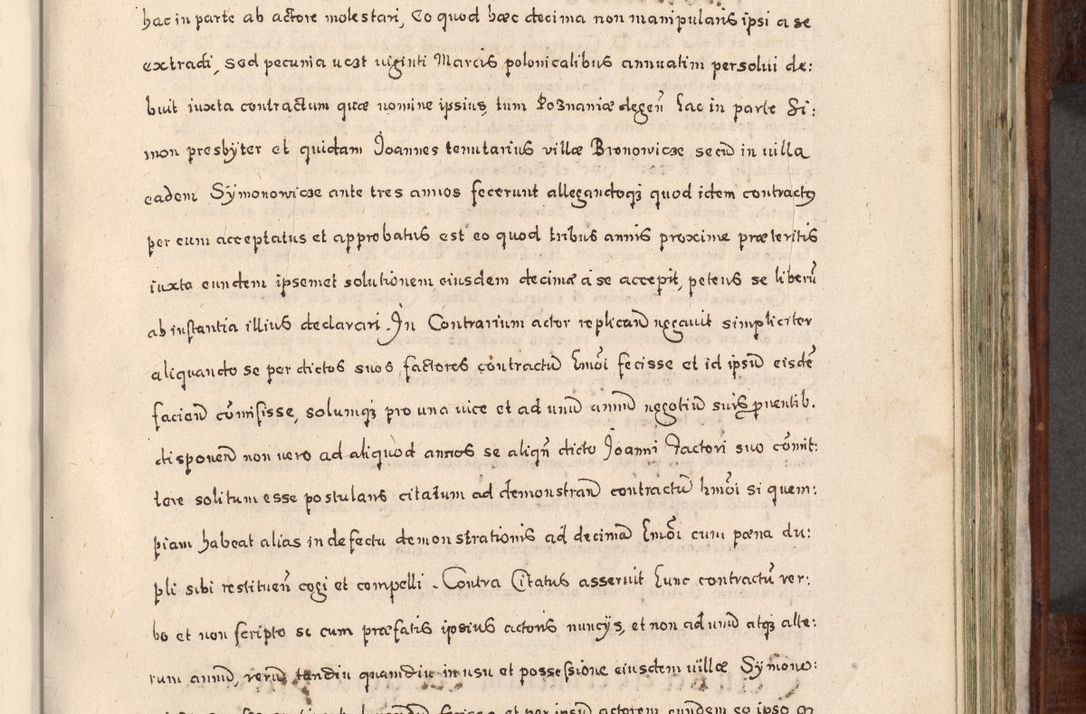 hac in parte ab actore molestari, Eo quod hæc decima non manipularis ipsi a se
extradi, sed pecunia uest uiginti Marcis polonicalibus annuatim persolui de:
buit iuxta contractum quæ nomine ipsius, tum Poznaniæ degeñ hac in parte Si:
mon presbÿter et quidam Joannes tenutarius villæ Bronowicze secũ in uilla
eadem Sÿmonowicze ante tres annos fecerunt allegandoqȝ quod idem contractꝰ
per eum acceptatus et approbatus est eo quod tribus annis proxime præteritis
iuxta eundem ipsemet solutionem eiusdem decimæ a se accepit, petens se liberũ
ab instantia illius declarari. In Contrarium actor replicañ negauit simpliciter
aliquando se per dictos suos factores contractũ hmõi fecisse et id ipsũ eisdẽ
faciend̃ cõmisisse, solumqȝ pro una uice et ad unũ annũ negotiũ suis ꝓuentib.
disponeñ non uero ad aliquod annos se aliqñ dicto Joanni Factori suo cõmit:
tere solitum esse postulans citatum ad demonstrand̃ contractũ hmõi si quem:
piam habeat alias in defectu demonstrationis ad decimã hmõi cum pœna du:
pli sibi restitueñ cogi et compelli. Contra Citatus asseruit hunc contractũ ver:
bo et non scripto se cum præfatis ipsius actoris nuncÿs, et non ad unũ atqȝ alte:
rum annũ, verũ tandiu quamdiu in usu et possessione eiusdem uillæ Sÿmono: